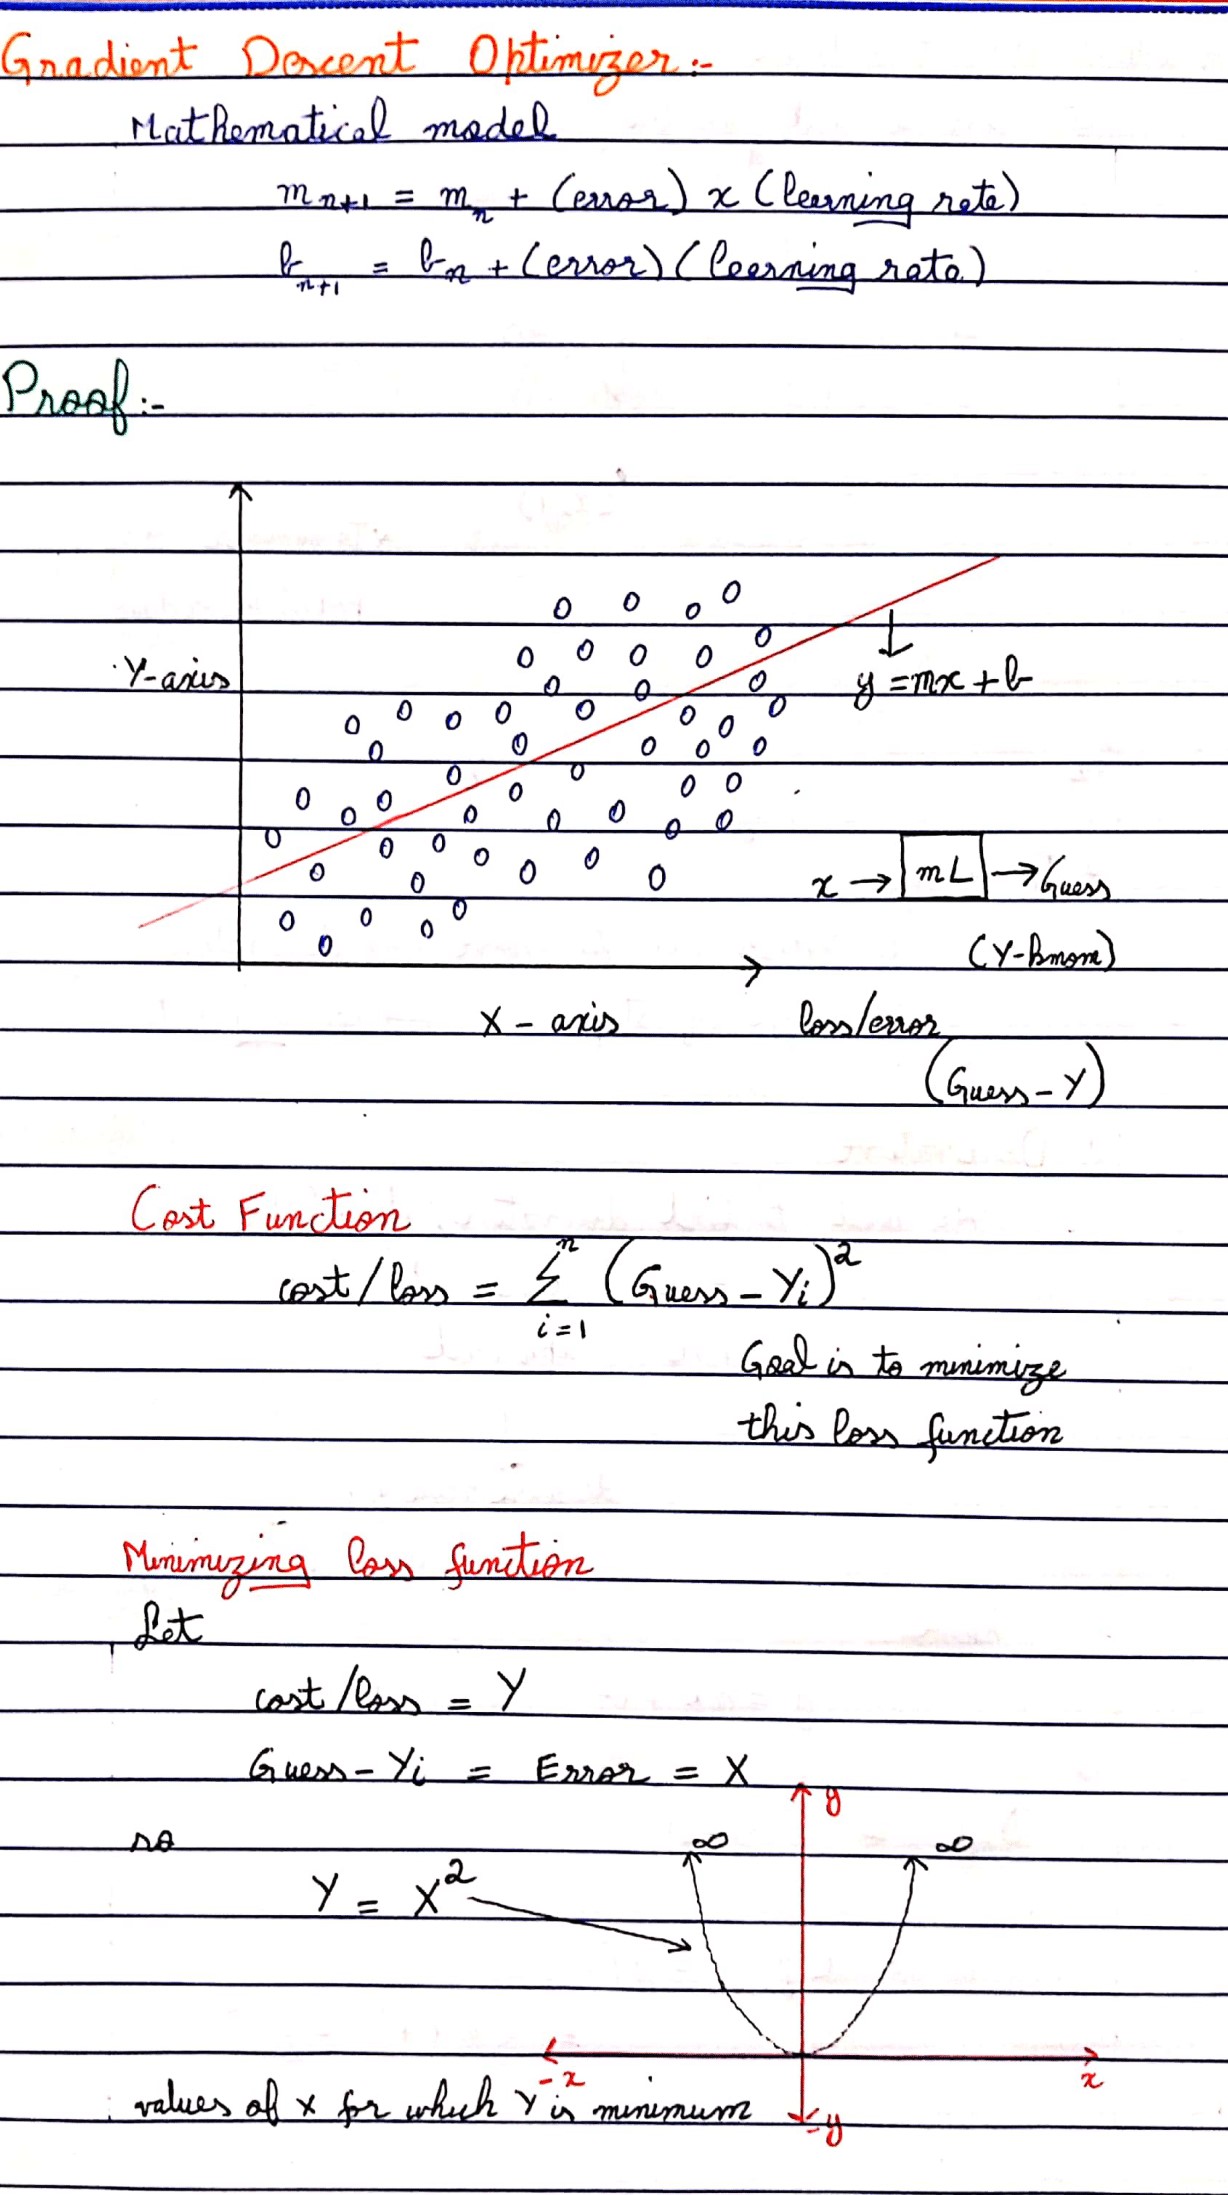 Gradient Descent Optimizer:-
Mathematical model
m n+1 = m n + (error) x (learning rate)
b n+1 = b n + (error) (learning rate)
Proof:-
Y-axis
y = mx + b
x → mL → Guess
(Y-
X - axis
loss/error
(Guess - Y)
Cost Function
cost/loss = Σ n i=1 (Guess - Yi)²
Goal is to minimize
this loss function
Minimizing loss function
Let
cost/loss = Y
Guess - Yi = Error = X
y
so
∞ ∞
Y = X²
-x x
values of x for which Y is minimum
-y